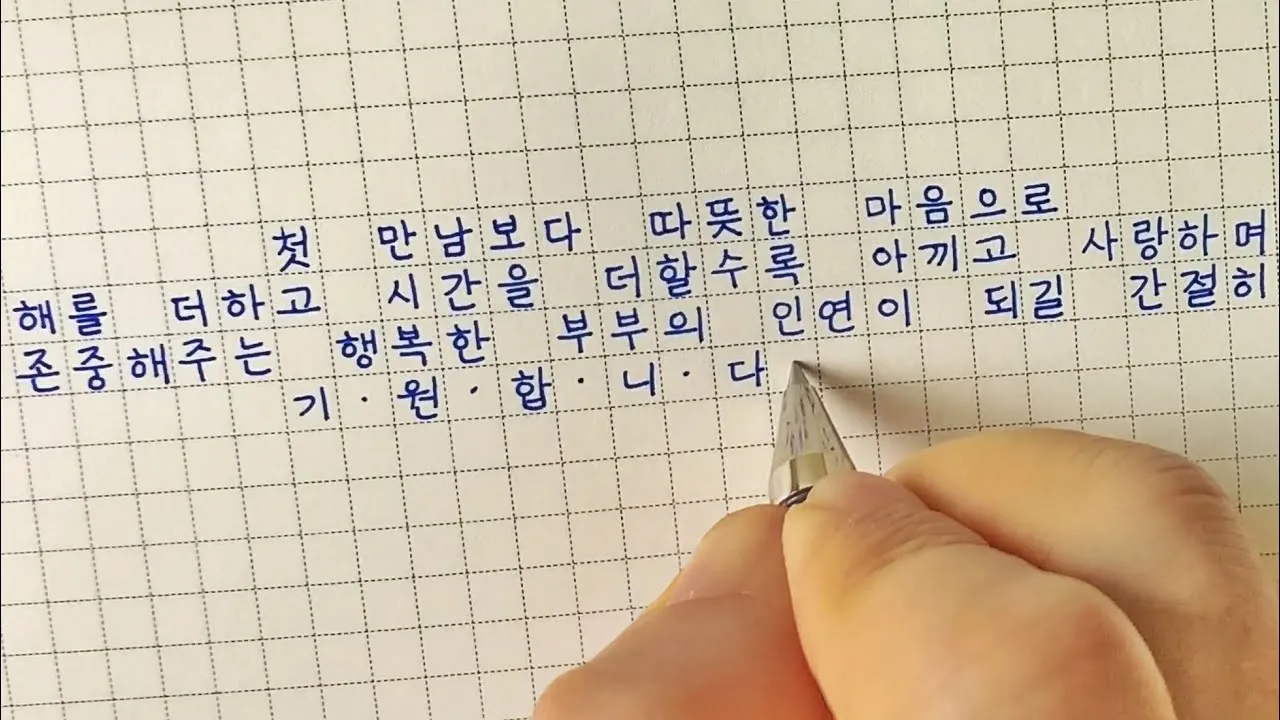 첫 만남보다 따뜻한 마음으로
해를 더하고 시간을 더할수록 아끼고 사랑하며
존중해주는 행복한 부부의 인연이 되길 간절히
기·원·합·니·다